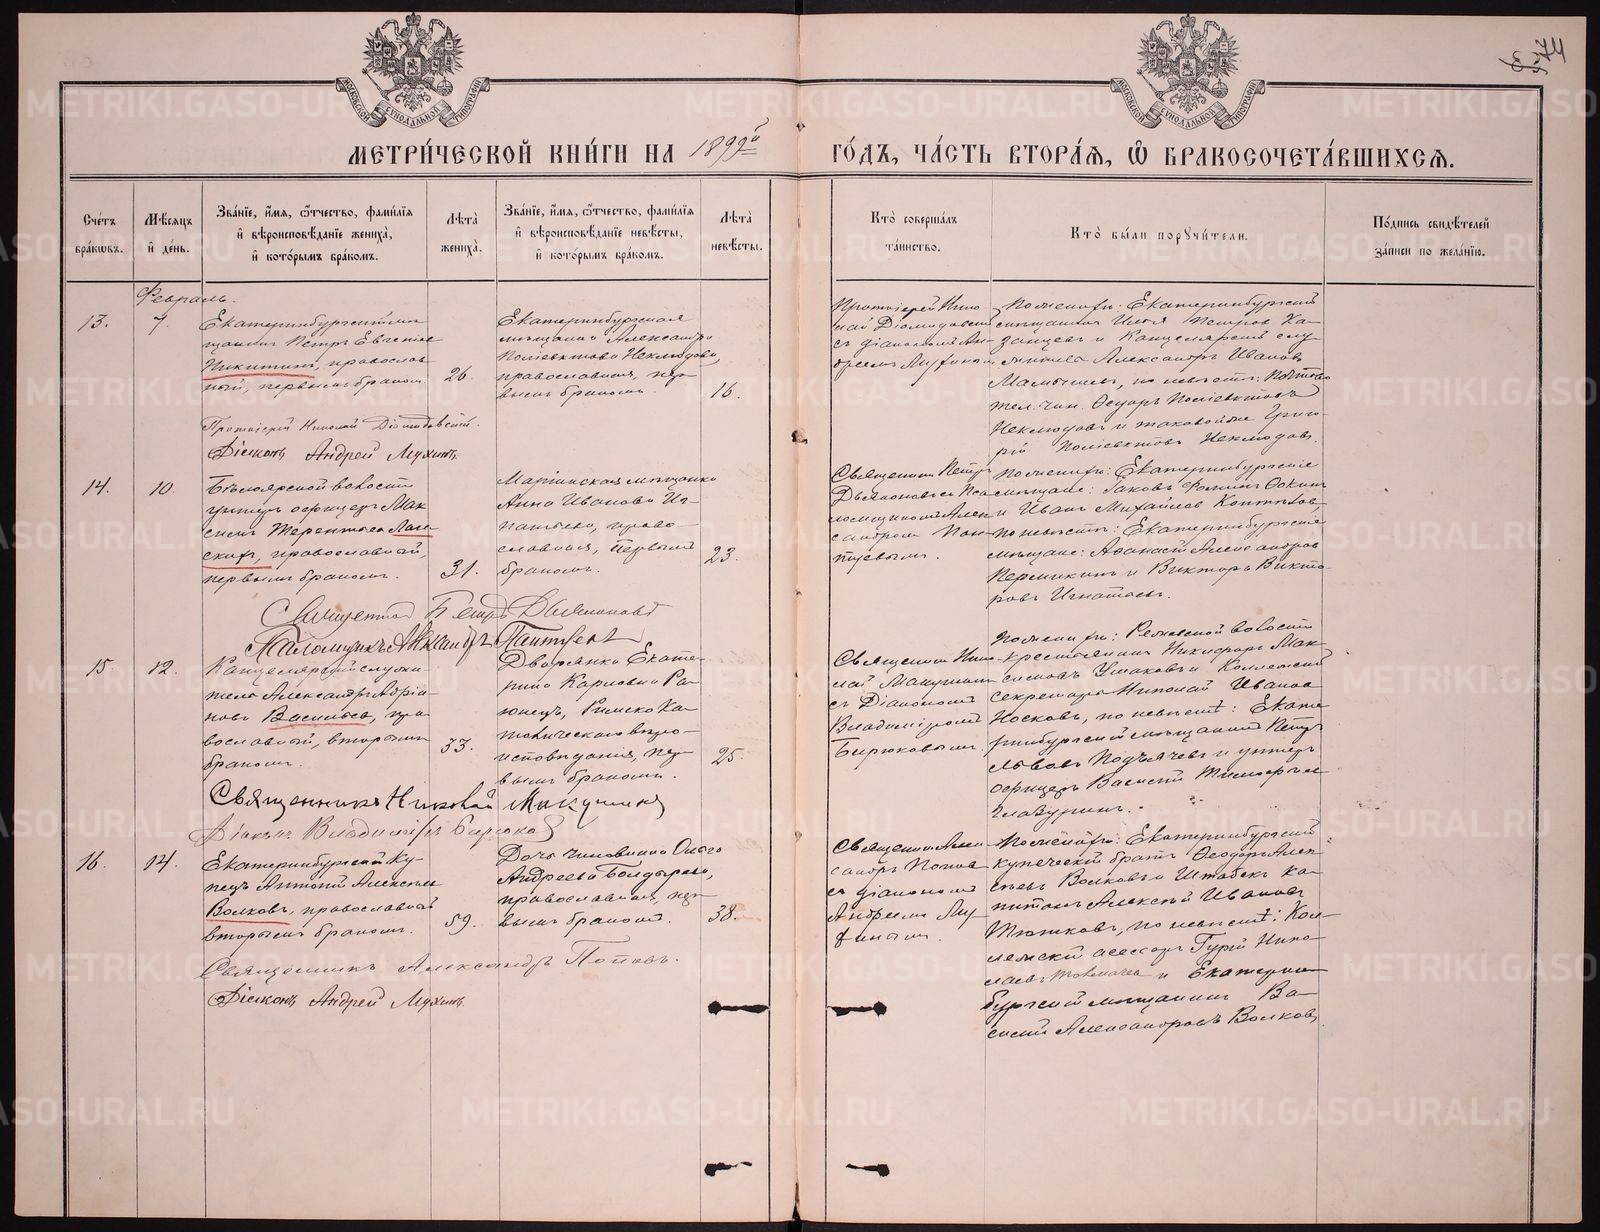 74
МОСКОВСКОЙ СѴНОДАЛЬНОЙ ТИПОГРАФІИ
МОСКОВСКОЙ СѴНОДАЛЬНОЙ ТИПОГРАФІИ
МЕТРИ́ЧЕСКОЙ КНИ́ГИ НА 1892й ГО́ДЪ, ЧА́СТЬ ВТОРА́Я, Ѽ БРАКОСОЧЕТА́ВШИХСЯ.
Сче́тъ бра́кѡвъ.
Мѣ́сяцъ и҆ де́нь.
Зва́ніе, и҆́мя, ѻ҆́тчество, фами́лія и҆ вѣроисповѣ́даніе жениха̀, и҆ кото́рымъ бра́комъ.
Лѣта̀ жениха̀.
Зва́ніе, и҆́мя, ѻ҆́тчество, фами́лія и҆ вѣроисповѣ́даніе невѣ́сты, и҆ кото́рымъ бра́комъ.
Лѣта̀ невѣ́сты.
Кто̀ соверша́лъ та́инство.
Кто̀ бы́ли порꙋчи́тели.
По́дпись свидѣ́телей за́писи по жела́нію.
Февраль.
13.
7.
Екатеринбургскій мѣ-
щанинъ Петръ Евгеніевъ
Никитинъ, православ-
ный, первымъ бракомъ.
26.
Екатеринбургская
мѣщанка Александра
Поліевктова Неклюдова,
православная, пер-
вымъ бракомъ.
16.
Протоіерей Нико-
лай Діомидовскій
съ діакономъ Ан-
дреемъ
По женихѣ: Екатеринбургскій
мѣщанинъ Илья Петровъ Ка-
занцевъ и Канцелярскій слу-
житель Александръ Ивановъ
Мамышевъ, по невѣстѣ: Почтово
тел. чин. Ѳедоръ Поліевктовъ
Неклюдовъ и таковой же Григо-
рій Поліевктовъ Неклюдовъ.
Протоіерей Николай Діомидовскій.
Діаконъ Андрей
14.
10.
Бѣлоярской волости
унтеръ офицеръ Мак-
симъ Терентьевъ
православный,
первымъ бракомъ.
31.
Маріинская мѣщанка
Анна Иванова Иг-
натьева, право-
славная, первымъ
бракомъ.
23.
Священникъ Петръ
Дьяконовъ съ Пса-
ломщикомъ Алек-
сандромъ
По женихѣ: Екатеринбургскіе
мѣщане: Яковъ Ѳоминъ
и Иванъ Михайловъ
по невѣстѣ: Екатеринбургскіе
мѣщане: Аѳанасій Александровъ
Пермикинъ и Викторъ Викто-
ровъ Игнатьевъ.
Священникъ Петръ Дьяконовъ
Псаломщикъ Александръ
15.
12.
Канцелярскій служи-
тель Александръ Адріа-
новъ Васильевъ, пра-
вославный, вторымъ
бракомъ.
33.
Дворянка Екате-
рина Карловна Ра-
Римско Ка-
толическаго вѣро-
исповѣданія, пер-
вымъ бракомъ.
25.
Священникъ Нико-
лай Макушинъ
съ Діакономъ
Владиміромъ
Бирюковымъ.
По женихѣ: Режевской волости
крестьянинъ Никифоръ Мак-
симовъ Ушаковъ и Коллежскій
Секретарь Николай Ивановъ
Носковъ, по невѣстѣ: Екате-
ринбургскій мѣщанинъ Петръ
Львовъ Подъячевъ и унтеръ
офицеръ Василій
Священникъ Николай Макушинъ
Діаконъ Владиміръ Бирюковъ
16.
14.
Екатеринбургскій Ку-
пецъ Антоній Алексѣевъ
Волковъ, православный
вторымъ бракомъ.
59.
Дочь чиновника Ольга
Андреева Болдырева,
православная, пер-
вымъ бракомъ.
38.
Священникъ Алек-
сандръ Поповъ
съ діакономъ
Андреемъ
По женихѣ: Екатеринбургскій
купеческій братъ Ѳеодоръ Алек-
сѣевъ Волковъ и Штабсъ ка-
питанъ Алексѣй Ивановъ
по невѣстѣ: Кол-
лежскій асессоръ Гурій Нико-
лаевъ Толмачевъ и Екатерин-
бургскій мѣщанинъ Ва-
силій Александровъ Волковъ.
Священникъ Александръ Поповъ.
Діаконъ Андрей
METRIKI.GASO-URAL.RU